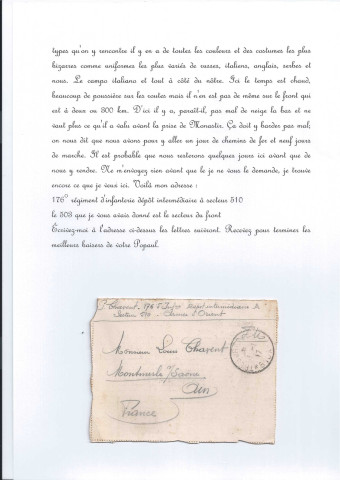 types qu'on y rencontre il y en a de toutes les couleurs et des costumes les plus
bizarres comme uniformes les plus variés de russes, italiens, anglais, serbes et
nous. Le camps italiano est tout à côté du nôtre. Ici le temps est chaud,
beaucoup de poussière sur les routes mais il n'en est pas de même sur le front qui
est à deux ou 300 km. D'ici il y a, paraît-il, pas mal de neige la bas et ne
vaut plus ce qu'il a valu avant la prise de Monastir. Ça doit y barder pas mal;
on nous dit que nous avons pour y aller un jour de chemins de fer et neuf jours
de marche. Il est probable que nous resterons quelques jours ici avant que de
nous y rendre. Ne m'envoyez rien avant que le je ne vous le demande, je trouve
encore ce que je veux ici. Voilà mon adresse :
176° régiment d'infanterie dépôt intermédiaire à secteur 510
le 503 que je vous avais donné est le secteur du front
Écrivez-moi à l'adresse ci-dessus les lettres suivront. Recevez pour terminer les
meilleurs baisers de votre Popaul.
Charent 176 dépôt intermédiaire
Secteur 510 Armée d'Orient
Monsieur Louis Charent
Montmerle s/Saône
Ain
France